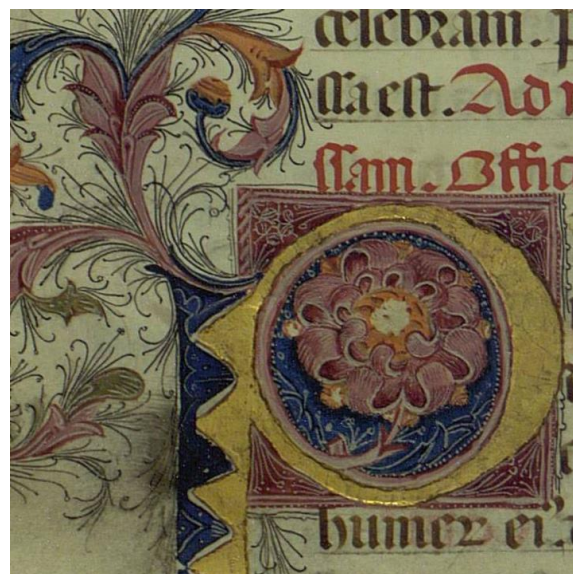 celebram. p
ssa est. Ad
ssam. Offic
P
humer ei'.